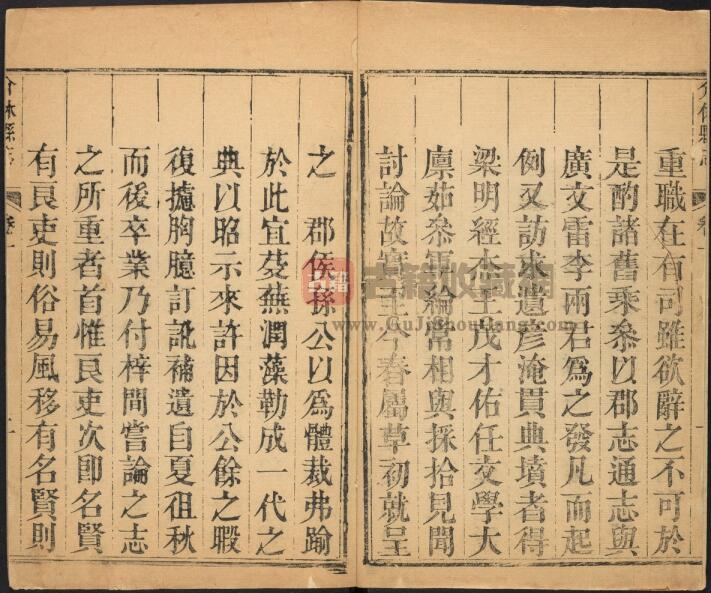 重職在有司雖欲辭之不可於
是酌諸舊乘參以郡志通志與
廣文雷李兩君為之發凡而起
例又訪求遺彥淹貫典墳者得
梁明經本立茂才佑任文學大
廪茹參軍綸常相與採拾見聞
討論故實至今春屬草初就呈
之　郡侯孫公以為體裁弗踰
於此宜芟蕪潤藻勒成一代之
典以昭示來許因於公餘之暇
復攄胸臆訂訛補遺自夏徂秋
而後卒業乃付梓間嘗論之志
之所重者首惟良吏次即名賢
有良吏則俗易風移有名賢則
介休縣志
卷一
古籍收藏網
www.GuJiShouCang.com